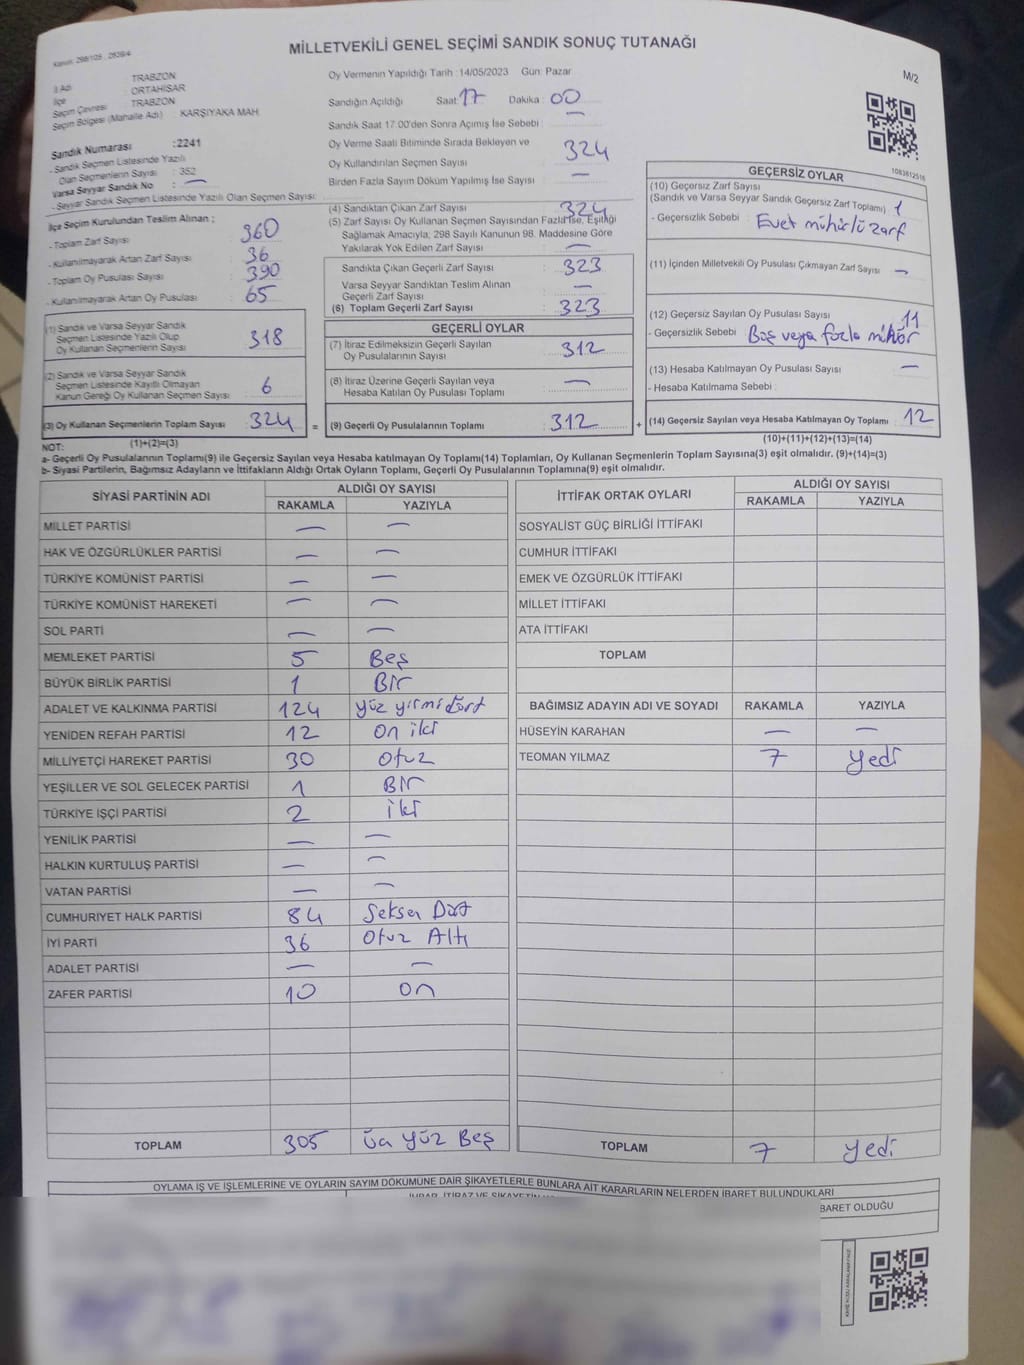 Kanun: 298/105 , 2839/4
MİLLETVEKİLİ GENEL SEÇİMİ SANDIK SONUÇ TUTANAĞI
M/2
İl Adı TRABZON
İlçe ORTAHİSAR
Seçim Çevresi TRABZON
Seçim Bölgesi (Mahalle Adı) : KARŞIYAKA MAH.
Sandık Numarası :2241
- Sandık Seçmen Listesinde Yazılı
Olan Seçmenlerin Sayısı : 352
Varsa Seyyar Sandık No : —
- Seyyar Sandık Seçmen Listesinde Yazılı Olan Seçmen Sayısı:
Oy Vermenin Yapıldığı Tarih :14/05/2023 Gün: Pazar
Sandığın Açıldığı Saat: 17 Dakika : 00
Sandık Saat 17:00'den Sonra Açımış İse Sebebi : —
Oy Verme Saati Bitiminde Sırada Bekleyen ve
Oy Kullandırılan Seçmen Sayısı : 324
Birden Fazla Sayım Döküm Yapılmış İse Sayısı : —
İlçe Seçim Kurulundan Teslim Alınan ;
- Toplam Zarf Sayısı : 360
- Kullanılmayarak Artan Zarf Sayısı : 36
- Toplam Oy Pusulası Sayısı : 390
- Kullanılmayarak Artan Oy Pusulası : 65
(1) Sandık ve Varsa Seyyar Sandık
Seçmen Listesinde Yazılı Olup
Oy Kullanan Seçmenlerin Sayısı : 318
(2) Sandık ve Varsa Seyyar Sandık
Seçmen Listesinde Kayıtlı Olmayan
Kanun Gereği Oy Kullanan Seçmen Sayısı : 6
(3) Oy Kullanan Seçmenlerin Toplam Sayısı : 324 =
(1)+(2)=(3)
(4) Sandıktan Çıkan Zarf Sayısı : 324
(5) Zarf Sayısı Oy Kullanan Seçmen Sayısından Fazla İse, Eşitliği
Sağlamak Amacıyla; 298 Sayılı Kanunun 98. Maddesine Göre
Yakılarak Yok Edilen Zarf Sayısı : —
Sandıkta Çıkan Geçerli Zarf Sayısı : 323
Varsa Seyyar Sandıktan Teslim Alınan
Geçerli Zarf Sayısı : —
(6) Toplam Geçerli Zarf Sayısı : 323
GEÇERLİ OYLAR
(7) İtiraz Edilmeksizin Geçerli Sayılan
Oy Pusulalarının Sayısı : 312
(8) İtiraz Üzerine Geçerli Sayılan veya
Hesaba Katılan Oy Pusulası Toplamı : —
(9) Geçerli Oy Pusulalarının Toplamı : 312 +
1083612516
GEÇERSİZ OYLAR
(10) Geçersiz Zarf Sayısı
(Sandık ve Varsa Seyyar Sandık Geçersiz Zarf Toplamı) : 1
- Geçersizlik Sebebi : Evet mühürlü zarf
(11) İçinden Milletvekili Oy Pusulası Çıkmayan Zarf Sayısı : —
(12) Geçersiz Sayılan Oy Pusulası Sayısı : 11
- Geçersizlik Sebebi : Boş veya fazla mühür
(13) Hesaba Katılmayan Oy Pusulası Sayısı : —
- Hesaba Katılmama Sebebi :
(14) Geçersiz Sayılan veya Hesaba Katılmayan Oy Toplamı : 12
(10)+(11)+(12)+(13)=(14)
NOT:
a- Geçerli Oy Pusulalarının Toplamı(9) ile Geçersiz Sayılan veya Hesaba katılmayan Oy Toplamı(14) Toplamları, Oy Kullanan Seçmenlerin Toplam Sayısına(3) eşit olmalıdır. (9)+(14)=(3)
b- Siyasi Partilerin, Bağımsız Adayların ve İttifakların Aldığı Ortak Oyların Toplamı, Geçerli Oy Pusulalarının Toplamına(9) eşit olmalıdır.
SİYASİ PARTİNİN ADI ALDIĞI OY SAYISI
RAKAMLA YAZIYLA
MİLLET PARTİSİ — —
HAK VE ÖZGÜRLÜKLER PARTİSİ — —
TÜRKİYE KOMÜNİST PARTİSİ — —
TÜRKİYE KOMÜNİST HAREKETİ — —
SOL PARTİ — —
MEMLEKET PARTİSİ 5 Beş
BÜYÜK BİRLİK PARTİSİ 1 Bir
ADALET VE KALKINMA PARTİSİ 124 yüz yirmi dört
YENİDEN REFAH PARTİSİ 12 on iki
MİLLİYETÇİ HAREKET PARTİSİ 30 otuz
YEŞİLLER VE SOL GELECEK PARTİSİ 1 Bir
TÜRKİYE İŞÇİ PARTİSİ 2 iki
YENİLİK PARTİSİ — —
HALKIN KURTULUŞ PARTİSİ — —
VATAN PARTİSİ — —
CUMHURİYET HALK PARTİSİ 84 Seksen Dört
İYİ PARTİ 36 Otuz Altı
ADALET PARTİSİ — —
ZAFER PARTİSİ 10 on
TOPLAM 305 üç yüz Beş
İTTİFAK ORTAK OYLARI ALDIĞI OY SAYISI
RAKAMLA YAZIYLA
SOSYALİST GÜÇ BİRLİĞİ İTTİFAKI
CUMHUR İTTİFAKI
EMEK VE ÖZGÜRLÜK İTTİFAKI
MİLLET İTTİFAKI
ATA İTTİFAKI
TOPLAM
BAĞIMSIZ ADAYIN ADI VE SOYADI RAKAMLA YAZIYLA
HÜSEYİN KARAHAN — —
TEOMAN YILMAZ 7 yedi
TOPLAM 7 yedi
OYLAMA İŞ VE İŞLEMLERİNE VE OYLARIN SAYIM DÖKÜMÜNE DAİR ŞİKAYETLERLE BUNLARA AİT KARARLARIN NELERDEN İBARET BULUNDUKLARI
İHBAR, İTİRAZ VE ŞİKAYETİN
BARET OLDUĞU